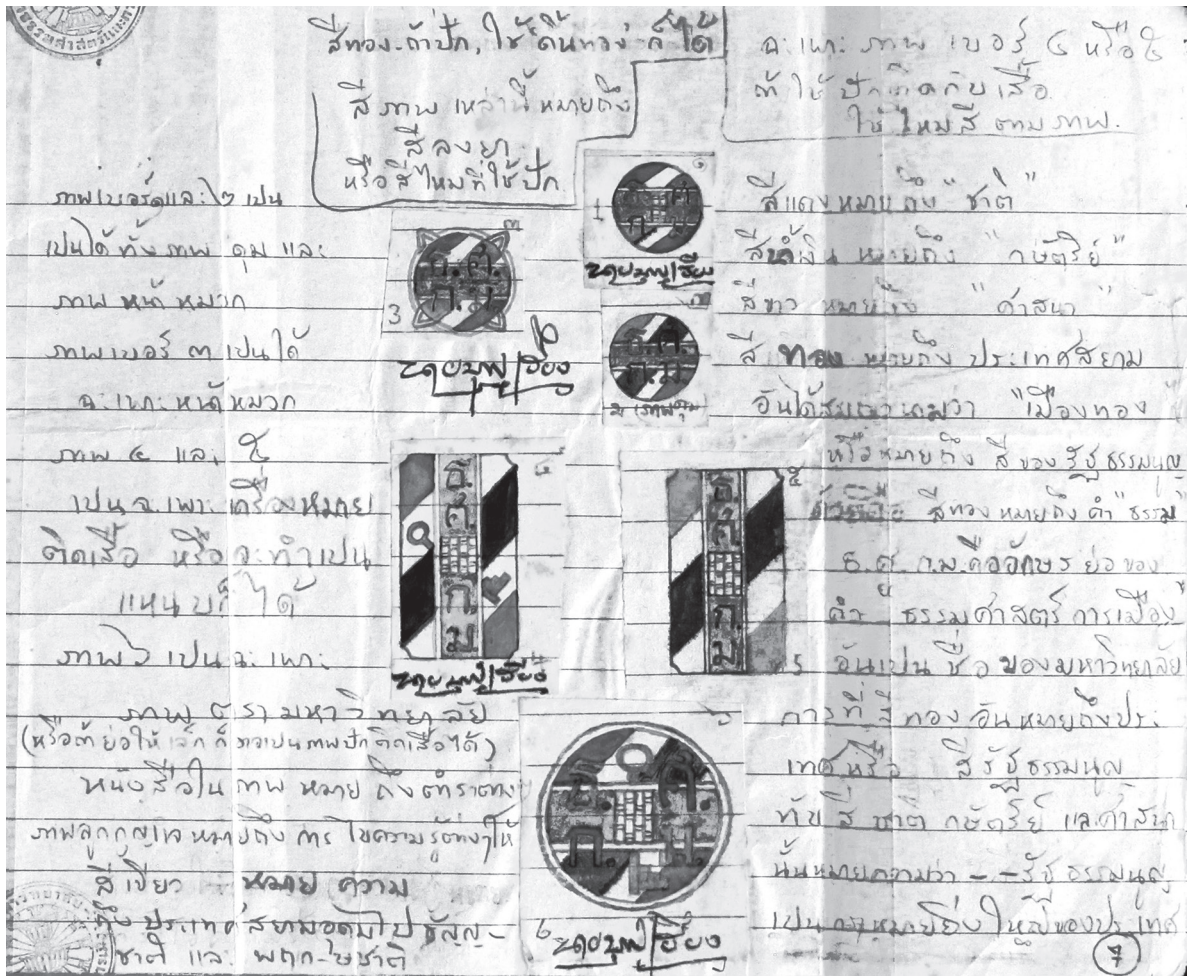 สีทอง-ถ้าปัก, ใช้ดิ้นทองก็ได้
สีภาพเหล่านี้หมายถึง
สีลงยา
หรือสีไหมที่ใช้ปัก
ฉะเพาะภาพเบอร์ ๔ หรือ ๕
ถ้าใช้ปักติดกับเสื้อ
ใช้ไหมสีตามภาพ.
ภาพเบอร์ ๑ และ ๒ เปน
เปนได้ทั้งภาพ ดุม และ
ภาพ หน้าหมวก
ภาพเบอร์ ๓ เปนได้
ฉะเพาะหน้าหมวก
ภาพ ๔ และ ๕
เปนฉะเพาะเครื่องหมาย
ติดเสื้อ หรือจะทำเปน
แหนบก็ได้
ภาพ ๖ เปนฉะเพาะ
ภาพตรามหาวิทยาลัย
(หรือถ้าย่อให้เล็กก็อาจเปนภาพปักติดเสื้อได้)
หนังสือในภาพ หมายถึงตำราต่างๆ
ภาพลูกกุญแจหมายถึงการไขความรู้ต่างๆให้
สีเขียว หมายความ
ถึงประเทศสยามอุดมไปด้วยธัญญ-
ชาติ และ พฤกษชาติ
๑
1
ธ. ศ.
ก. ม.
๓
ธ. ศ.
ก. ม.
3
ธ. ศ.
ก. ม.
ธ.
ศ.
ก.
ม
๕
ธ.
ศ.
ก.
ม
5
๖
ธ. ศ.
ก. ม.
สีแดงหมายถึง "ชาติ"
สีน้ำเงิน หมายถึง "กษัตริย์"
สีขาว หมายถึง "ศาสนา"
สีทอง หมายถึง ประเทศสยาม
อันได้สมญานามว่า "เมืองทอง"
หรือหมายถึง สีของรัฐธรรมนูญ
สีทองหมายถึงคำ "ธรรม"
ธ.ศ.ก.ม. คืออักษรย่อของ
คำ ธรรมศาสตร์การเมือง
อันเปนชื่อของมหาวิทยาลัย
การที่สีทองอันหมายถึงประ-
เทศหรือ สีรัฐธรรมนูญ
ทับสี ชาติ กษัตริย์ และศาสนา
นั้นหมายความว่า - - รัฐธรรมนูญ
เปนกฎหมายยิ่งใหญ่ของประเทศ
7